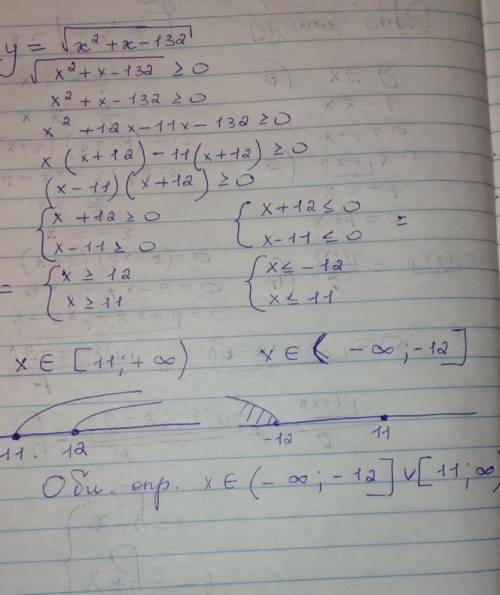 y = √(x² + x - 132)
√(x² + x - 132) ≥ 0
x² + x - 132 ≥ 0
x² + 12x - 11x - 132 ≥ 0
x (x + 12) - 11 (x + 12) ≥ 0
(x - 11) (x + 12) ≥ 0
{ x + 12 ≥ 0 { x + 12 ≤ 0
{ x - 11 ≥ 0 { x - 11 ≤ 0 =
= { x ≥ 12 { x ≤ -12
{ x ≥ 11 { x ≤ 11
x ∈ [11; + ∞) x ∈ (- ∞; -12]
11. 12 -12 11
Обл. опр. x ∈ (- ∞; -12] v [11; ∞)